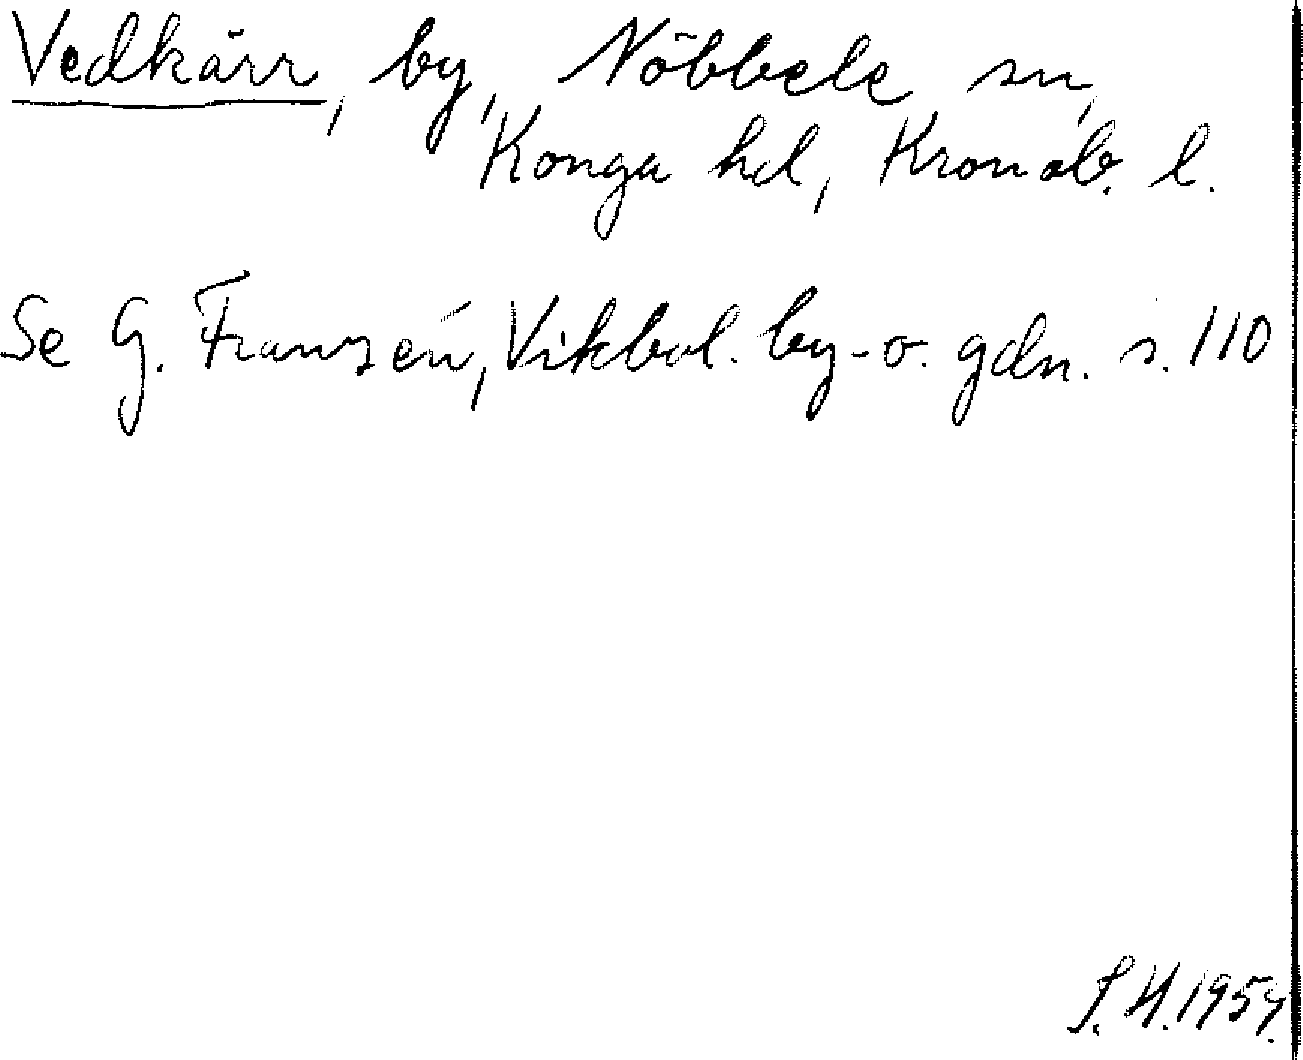 Vedkärr, by, Nöbbele sn,
Konga hd, Kronob. l.
Se G. Franzén, Vikbol. by- o. gdn. s. 110